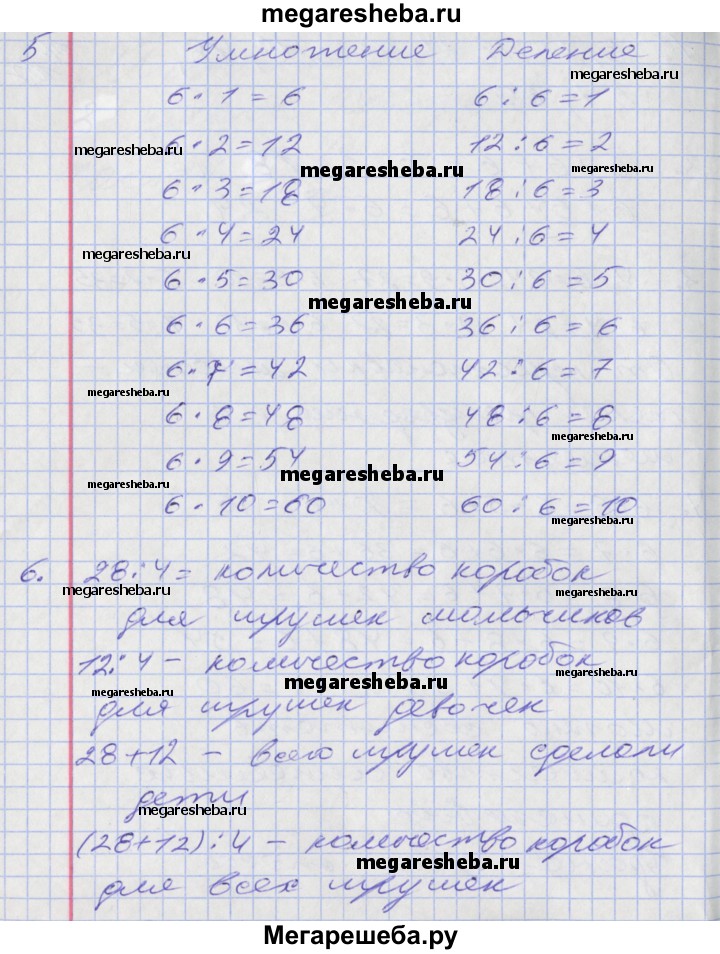 megaresheba.ru
5 Умножение Деление
megaresheba.ru
6 · 1 = 6 6 : 6 = 1
6 · 2 = 12 12 : 6 = 2
megaresheba.ru
megaresheba.ru megaresheba.ru
6 · 3 = 18 18 : 6 = 3
6 · 4 = 24 24 : 6 = 4
megaresheba.ru
6 · 5 = 30 30 : 6 = 5
megaresheba.ru
6 · 6 = 36 36 : 6 = 6
6 · 7 = 42 42 : 6 = 7
megaresheba.ru
6 · 8 = 48 48 : 6 = 8
megaresheba.ru
6 · 9 = 54 54 : 6 = 9
megaresheba.ru megaresheba.ru
6 · 10 = 60 60 : 6 = 10
megaresheba.ru
6. 28 : 4 = количество коробок
megaresheba.ru megaresheba.ru
для игрушек мальчиков
12 : 4 – количество коробок
megaresheba.ru megaresheba.ru megaresheba.ru
для игрушек девочек
28 + 12 – всего игрушек сделали
дети
megaresheba.ru megaresheba.ru
(28 + 12) : 4 – количество коробок
megaresheba.ru
для всех игрушек
Мегарешеба.ру